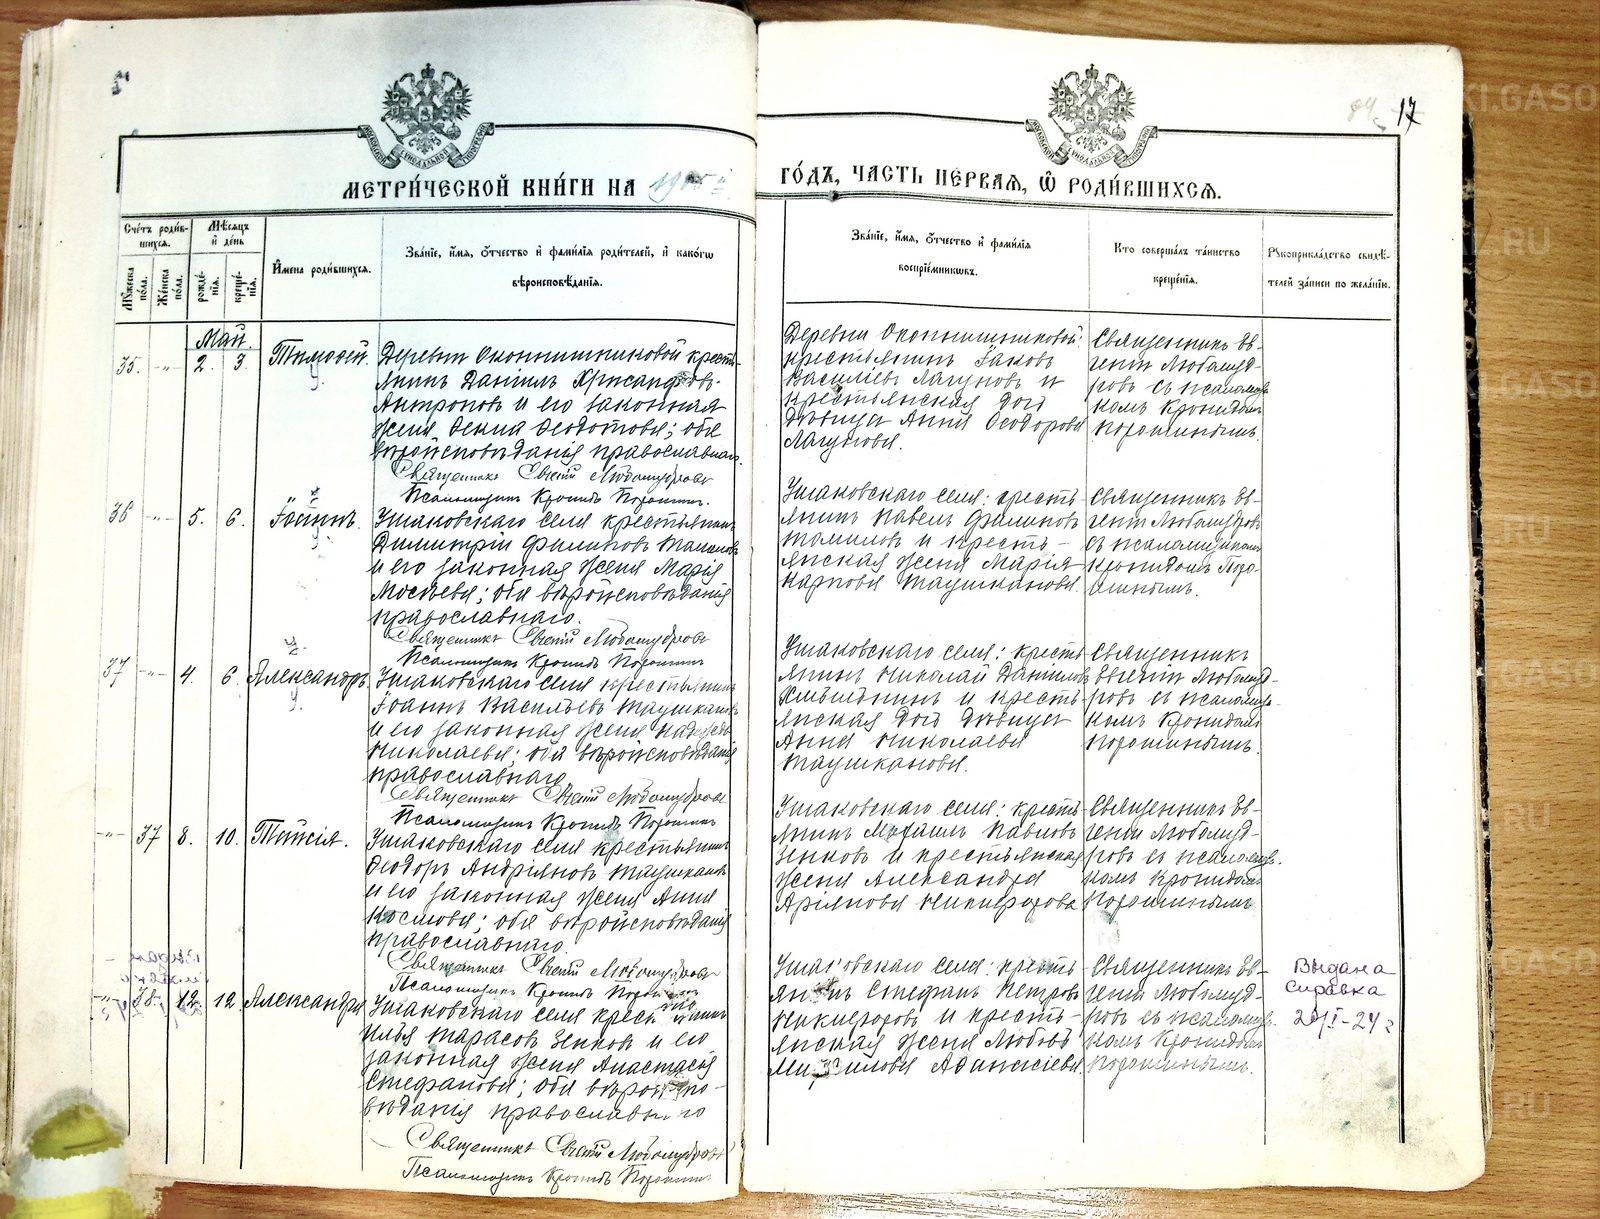 17
МЕТРИ́ЧЕСКОЙ КНИ́ГИ НА 1905 й
ГО́ДЪ, ЧАСТЬ ПЕ́РВАЯ, Ѽ РОДИ́ВШИХСѦ.
Счетъ роди́вшихся.
Мѣ́сяцъ и день
Му́жеска по́ла.
Же́нска по́ла.
рожде́нїя.
креще́нїя.
И́мена роди́вшихся.
Зва́нїе, и́мя, о́тчество и фами́лїя роди́телей, и како́гѡ
вѣроисповѣ́данїя.
Зва́нїе, и́мя, о́тчество и фами́лїя
воспрїе́мниковъ.
Кто соверша́лъ та́инство
креще́нїя.
Рукоприкла́дство свидѣ́телей за́писи по жела́нїю.
Май.
35. -„- 2. 3 Тимофей.
Деревни Оконишниковой кресть-
янинъ Даніилъ Хрисанфовъ
Антроповъ и его законная
жена Ѳеодотова; оба
вѣроисповѣданія православнаго.
Священникъ Евгеній Любомудровъ
Псаломщикъ Кронидъ Порошинъ.
Деревни Оконишниковой:
крестьянинъ Іаковъ
Василіевъ Лагуновъ и
крестьянская дочь
дѣвица Анна Ѳеодорова
Лагунова.
Священникъ Ев-
геній Любомуд-
ровъ съ псаломщи-
комъ Кронидомъ
Порошинымъ.
36 -„- 5. 6. Іоаннъ.
Ушаковскаго села крестьянинъ
Димитрій Филиповъ Томиловъ
и его законная жена Марія
Моѵсеева; оба вѣроисповѣданія
православнаго.
Священникъ Евгеній Любомудровъ
Псаломщикъ Кронидъ Порошинъ
Ушаковскаго села: кресть-
янинъ Павелъ Филиповъ
Томиловъ и кресть-
янская жена Марія
Карпова Таушканова.
Священникъ Ев-
геній Любомудровъ
съ псаломщикомъ
Кронидомъ Поро-
шинымъ.
37 -„- 4. 6. Александръ.
Ушаковскаго села крестьянинъ
Іоаннъ Васильевъ Таушкановъ
и его законная жена Надежда
Николаева; оба вѣроисповѣданія
православнаго.
Священникъ Евгеній Любомудровъ
Псаломщикъ Кронидъ Порошинъ
Ушаковскаго села: кресть-
янинъ Николай Даниловъ
и кресть-
янская дочь дѣвица
Анна Николаева
Таушканова.
Священникъ
Евгеній Любомуд-
ровъ съ псаломщи-
комъ Кронидомъ
Порошинымъ.
-„- 37 8. 10. Таисія.
Ушаковскаго села крестьянинъ
Ѳеодоръ Андріяновъ Таушкановъ
и его законная жена Анна
Космова; оба вѣроисповѣданія
православнаго.
Священникъ Евгеній Любомудровъ
Псаломщикъ Кронидъ Порошинъ
Ушаковскаго села: кресть-
янинъ Михаилъ Павловъ
Зенковъ и крестьянская
жена Александра
Никифорова
Священникъ Ев-
геній Любомуд-
ровъ съ псаломщи-
комъ Кронидомъ
Порошинымъ
-„- 38 12 12. Александра
Ушаковскаго села крестьянинъ
Илья Тарасовъ Зенковъ и его
законная жена Анастасія
Стефанова; оба вѣроиспо-
вѣданія православнаго
Священникъ Евгеній Любомудровъ
Псаломщикъ Кронидъ Порошинъ
Ушаковскаго села: кресть-
янинъ Стефанъ Петровъ
Никифоровъ и кресть-
янская жена Любовь
Михаилова
Священникъ Ев-
геній Любомуд-
ровъ съ псаломщи-
комъ Кронидомъ
Порошинымъ.
Выдана
справка